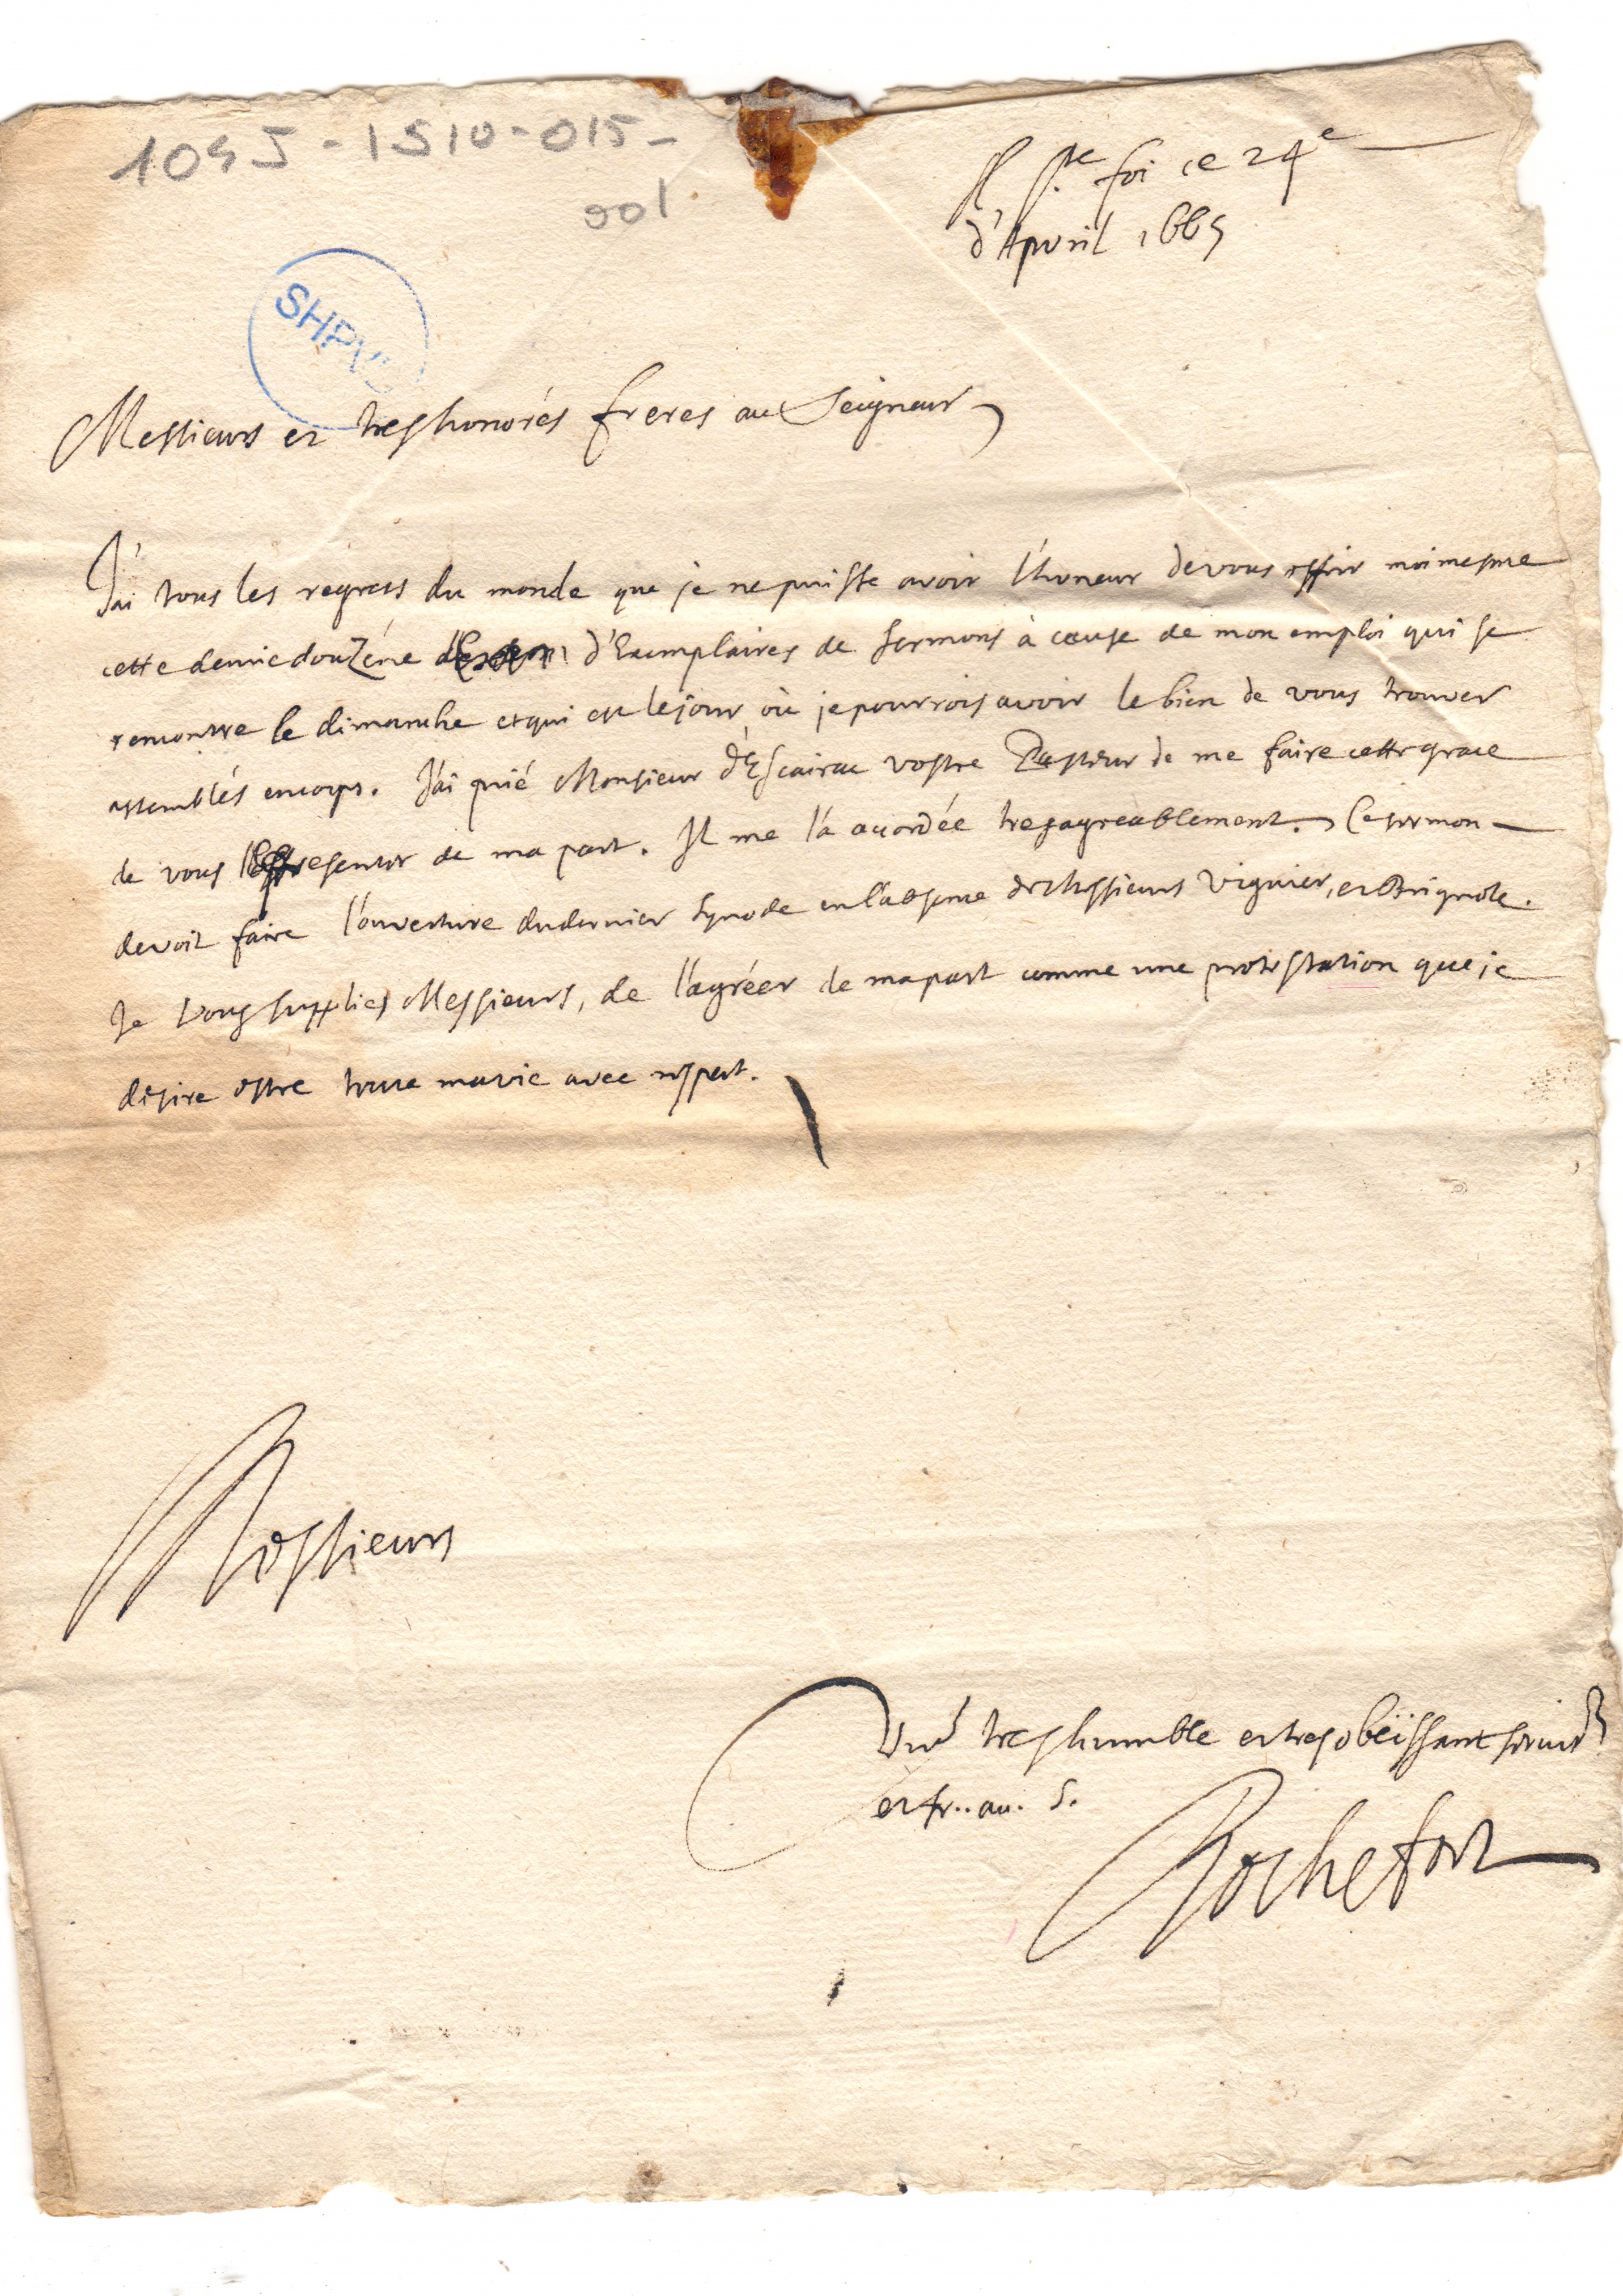 1045-1510-015-
001
A Ste foi ce 24e
d'Apvril 1665
SHPVD
Messieurs et treshonorés freres au Seigneur
J'ai tous les regrets du monde que je ne puisse avoir l'honeur de vous offrir moi mesme
cette demie douzéne d'Exemplaires de sermons à cause de mon emploi qui se
rencontre le dimanche et qui est le jour où je pourrois avoir le bien de vous trouver
assemblés encorps. J'ai prié Monsieur d'Escairac vostre Pasteur de me faire cette grace
de vous les presenter de ma part. Il me l'a acordée tresagreablement. Ce sermon
devoit faire l'ouverture du dernier synode en l'absence de Messieurs Viguier, et Brignole.
Je vous supplies Messieurs, de l'agréer de ma part comme une protestation que je
desire estre toute ma vie avec respect.
Messieurs
Vre treshumble et tresobeïssant servitr
et fr.. au. S.
Rochefort